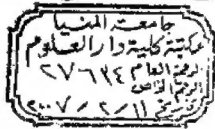 جامعة المنيا
مكتبة كلية دار العلوم
الرقم العام ٢٧٦٣٤
الرقم الخاص
تاريخ ١١ / ٢ / ٢٠٠٧